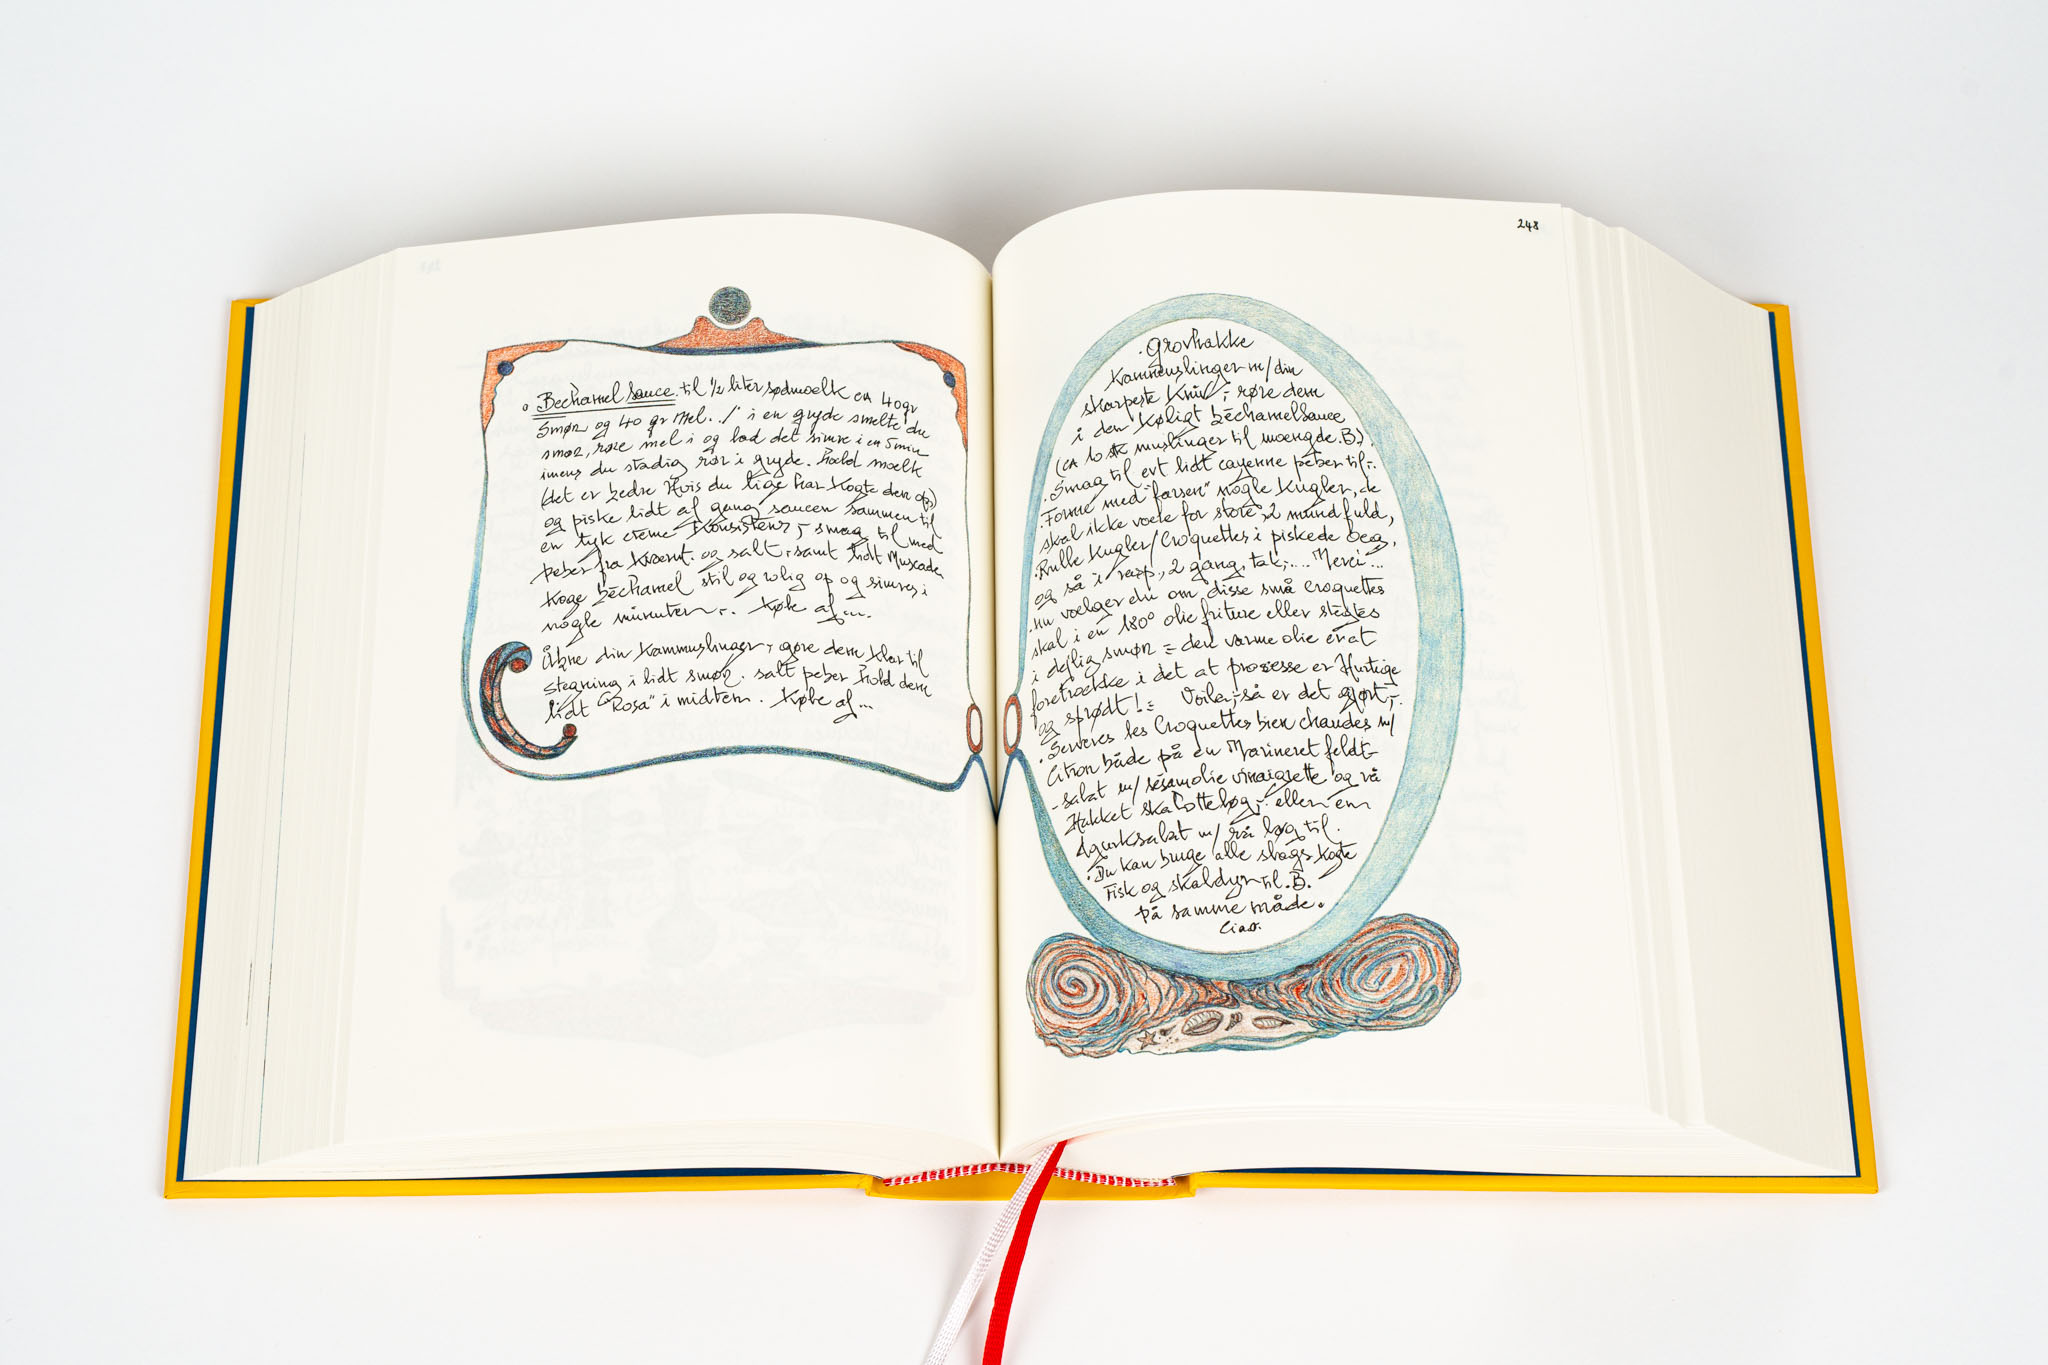 Bechamel Sauce. til ½ liter sødmælk ca 40gr
Smør og 40 gr Mel. ./ i en gryde smelte du
smør, røre mel i og lad det simre i ca 5 min
imens du stadig rør i gryde. Hæld mælk
(det er bedre Hvis du lige har Kogte den op)
og piske lidt af gang saucen sammen til
en tyk creme Konsistens, smag til med
peber fra Kværnt. og salt, samt lidt Muscade.
Koge béchamel stil og rolig op og simres i
nogle minuter. Køle af...
Åbne din Kammuslinger, gøre dem Klar til
stegning i lidt smør. salt peber Hold dem
lidt "Rosa" i midten. Køle af...
248
Grovhakke
Kammuslinger m/din
skarpeste Kniv, røre dem
i den Køligt béchamelSauce
(ca 10 stk muslinger til mængde.B).
.Smag til evt lidt cayenne peber til.
.Forme med "farsen" nogle Kugler, de
skal ikke være for store, 2 mundfuld,
.Rulle Kugler/Croquettes i piskede Oeg,
og så i rasp, 2 gang, tak,.... Merci...
.nu vælger du om disse små croquettes
skal i en 180° olie friture eller stegtes
i dejlig smør = den varme olie er at
foretrække i det at prosesse er Hurtige
og sprødt! = Voila, så er det gjort,
.Serveres les Croquettes bien chaudes m/
Citron både på en Marineret feldt-
-salat m/ sésamolie vinaigrette og rå
Hakket skalotteløg, eller en
Agurksalat m/ rå løg til.
.Du kan bruge alle slags Kogte
Fisk og skaldyr til .B.
på samme måde.
Ciao.